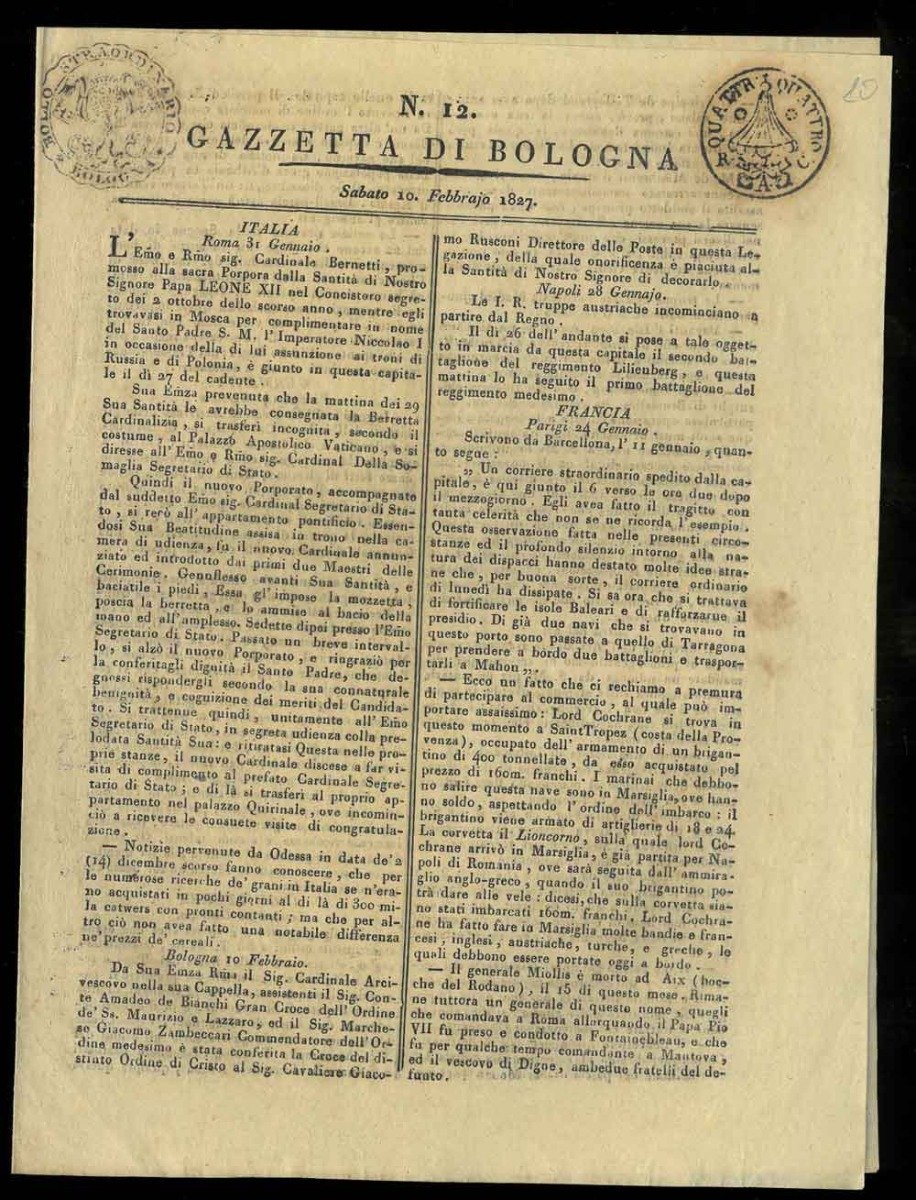 BOLLO STRAORDINARIO
BOLOGNA
QUATTR. QUATTRO
R. C. A.
20
N. 12.
GAZZETTA DI BOLOGNA
Sabato 10. Febbrajo 1827.
ITALIA
Roma 31 Gennaio.
L'Emo e Rmo sig. Cardinale Bernetti, pro-
mosso alla sacra Porpora dalla Santità di Nostro
Signore Papa LEONE XII nel Concistoro segre-
to dei 2 ottobre dello scorso anno, mentre egli
trovavasi in Mosca per complimentare in nome
del Santo Padre S. M. l'Imperatore Niccolao I
in occasione della di lui assunzione ai troni di
Russia e di Polonia, è giunto in questa capita-
le il dì 27 del cadente.
Sua Emza prevenuta che la mattina dei 29
Sua Santità le avrebbe consegnata la Berretta
Cardinalizia, si trasferì incognita, secondo il
costume, al Palazzo Apostolico Vaticano, e si
diresse all'Emo e Rmo sig. Cardinal Della So-
maglia Segretario di Stato.
Quindi il nuovo Porporato, accompagnato
dal suddetto Emo sig. Cardinal Segretario di Sta-
to, si recò all'appartamento pontificio. Essen-
dosi Sua Beatitudine assisa in trono nella ca-
mera di udienza, fu il nuovo Cardinale annun-
ziato ed introdotto dai primi due Maestri delle
Cerimonie. Genuflesso avanti Sua Santità, e
baciatile i piedi, Essa gl'impose la mozzetta,
poscia la berretta, e lo ammise al bacio della
mano ed all'amplesso. Sedette dipoi presso l'Emo
Segretario di Stato. Passato un breve interval-
lo, si alzò il nuovo Porporato, e ringraziò per
la conferitagli dignità il Santo Padre, che de-
gnossi rispondergli secondo la sua connaturale
benignità, e cognizione dei meriti del Candida-
to. Si trattenne quindi, unitamente all'Emo
Segretario di Stato, in segreta udienza colla pre-
lodata Santità Sua: e ritiratasi Questa nelle pro-
prie stanze, il nuovo Cardinale discese a far vi-
sita di complimento al prefato Cardinale Segre-
tario di Stato; e di là si trasferì al proprio ap-
partamento nel palazzo Quirinale, ove incomin-
ciò a ricevere le consuete visite di congratula-
zione.
— Notizie pervenute da Odessa in data de'2
(14) dicembre scorso fanno conoscere, che per
le numerose ricerche de' grani in Italia se n'era-
no acquistati in pochi giorni al di là di 300 mi-
la catwers con pronti contanti; ma che per al-
tro ciò non avea fatto una notabile differenza
ne'prezzi de' cereali.
Bologna 10 Febbraio.
Da Sua Emza Rma il Sig. Cardinale Arci-
vescovo nella sua Cappella, assistenti il Sig. Con-
te Amadeo de Bianchi Gran Croce dell'Ordine
de' Ss. Maurizio e Lazzaro, ed il Sig. Marche-
se Giacomo Zambeccari Commendatore dell'Or-
dine medesimo è stata conferita la Croce del di-
stinto Ordine di Cristo al Sig. Cavaliere Giaco-
mo Rusconi Direttore delle Poste in questa Le-
gazione, della quale onorificenza è piaciuta al-
la Santità di Nostro Signore di decorarlo.
Napoli 28 Gennajo.
Le I. R. truppe austriache incominciano a
partire dal Regno.
Il dì 26 dell'andante si pose a tale ogget-
to in marcia da questa capitale il secondo bat-
taglione del reggimento Lilienberg, e questa
mattina lo ha seguito il primo battaglione del
reggimento medesimo.
FRANCIA
Parigi 24 Gennaio.
Scrivono da Barcellona, l'11 gennaio, quan-
to segue:
„ Un corriere straordinario spedito dalla ca-
pitale, è qui giunto il 6 verso le ore due dopo
il mezzogiorno. Egli avea fatto il tragitto con
tanta celerità che non se ne ricorda l'esempio.
Questa osservazione fatta nelle presenti circo-
stanze ed il profondo silenzio intorno alla na-
tura dei dispacci hanno destato molte idee stra-
ne che, per buona sorte, il corriere ordinario
di lunedì ha dissipate. Si sa ora che si trattava
di fortificare le isole Baleari e di rafforzarne il
presidio. Di già due navi che si trovavano in
questo porto sono passate a quello di Tarragona
per prendere a bordo due battaglioni e traspor-
tarli a Mahon „.
— Ecco un fatto che ci rechiamo a premura
di partecipare al commercio, al quale può im-
portare assaissimo: Lord Cochrane si trova in
questo momento a SaintTropez (costa della Pro-
venza), occupato dell'armamento di un brigan-
tino di 400 tonnellate, da esso acquistato pel
prezzo di 160m. franchi. I marinai che debbo-
no salire questa nave sono in Marsiglia, ove han-
no soldo, aspettando l'ordine dell'imbarco: il
brigantino viene armato di artiglierie di 18 e 24.
La corvetta il Lioncorno, sulla quale lord Co-
chrane arrivò in Marsiglia, è già partita per Na-
poli di Romania, ove sarà seguita dall'ammira-
glio anglo-greco, quando il suo brigantino po-
trà dare alle vele: dicesi, che sulla corvetta sia-
no stati imbarcati 160m. franchi. Lord Cochra-
ne ha fatto fare in Marsiglia molte bandie e fran-
cesi, inglesi, austriache, turche, e greche, le
quali debbono essere portate oggi a bordo.
— Il generale Miollis è morto ad Aix (boc-
che del Rodano), il 15 di questo mese. Rima-
ne tuttora un generale di questo nome, quegli
che comandava a Roma allorquando il Papa Pio
VII fu preso e condotto a Fontainebleau, e che
fu per qualche tempo comandante a Mantova,
ed il vescovo di Digne, ambedue fratelli del de-
funto.